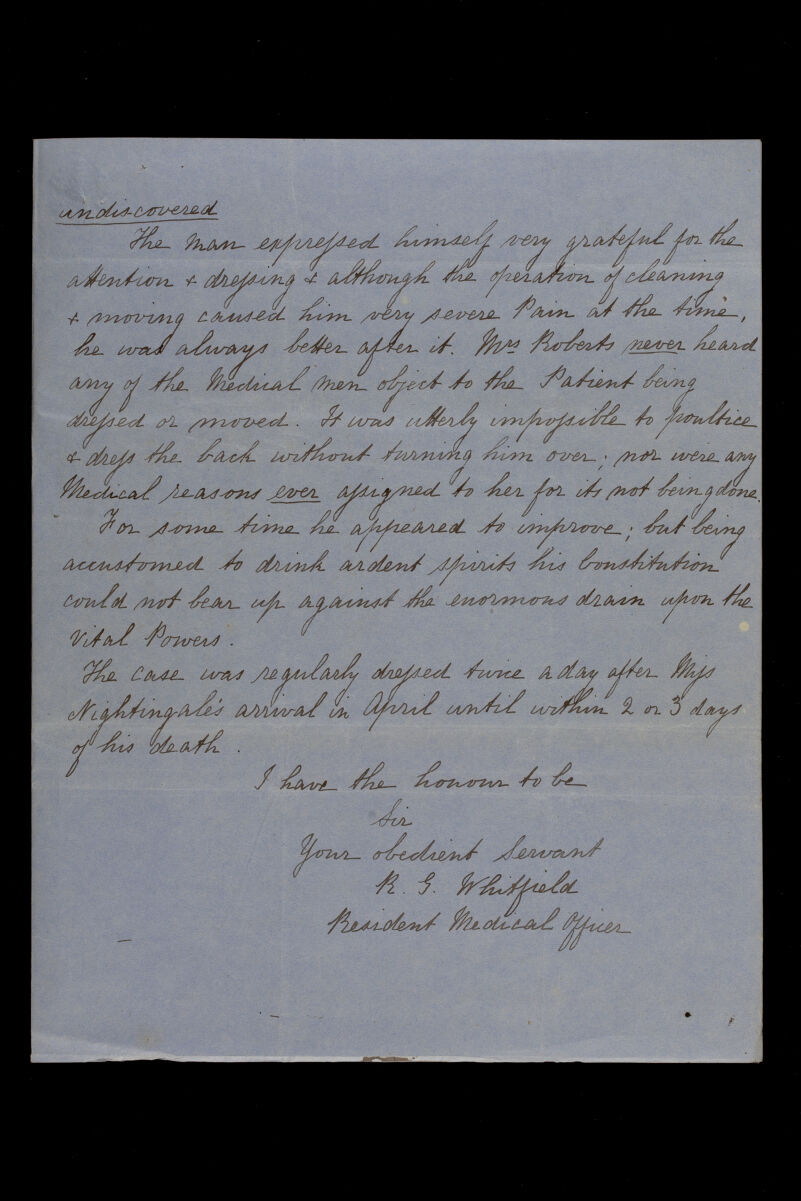 undiscovered
The man expressed himself very grateful for the
attention & dressing & although the operation of cleaning
& moving caused him very severe Pain at the time,
he was always better after it. Mrs Roberts never heard
any of the Medical men object to the Patient being
dressed or moved. It was utterly impossible to poultice
& dress the back without turning him over; nor were any
Medical reasons ever assigned to her for its not being done.
For some time he appeared to improve; but being
accustomed to drink ardent spirits his Constitution
could not bear up against the enormous drain upon the
Vital Powers.
The case was regularly dressed twice a day after Miss
Nightingale's arrival in April until within 2 or 3 days
of his death.
I have the honour to be
Sir
Your obedient Servant
R. G. Whitfield
Resident Medical Officer